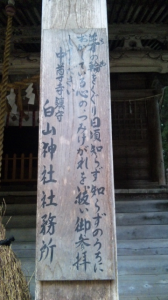 茅の輪をくぐり日頃知らず知らずのうちに
おかす心のつみけがれを祓い御参拝
中尊寺鎮守
白山神社社務所